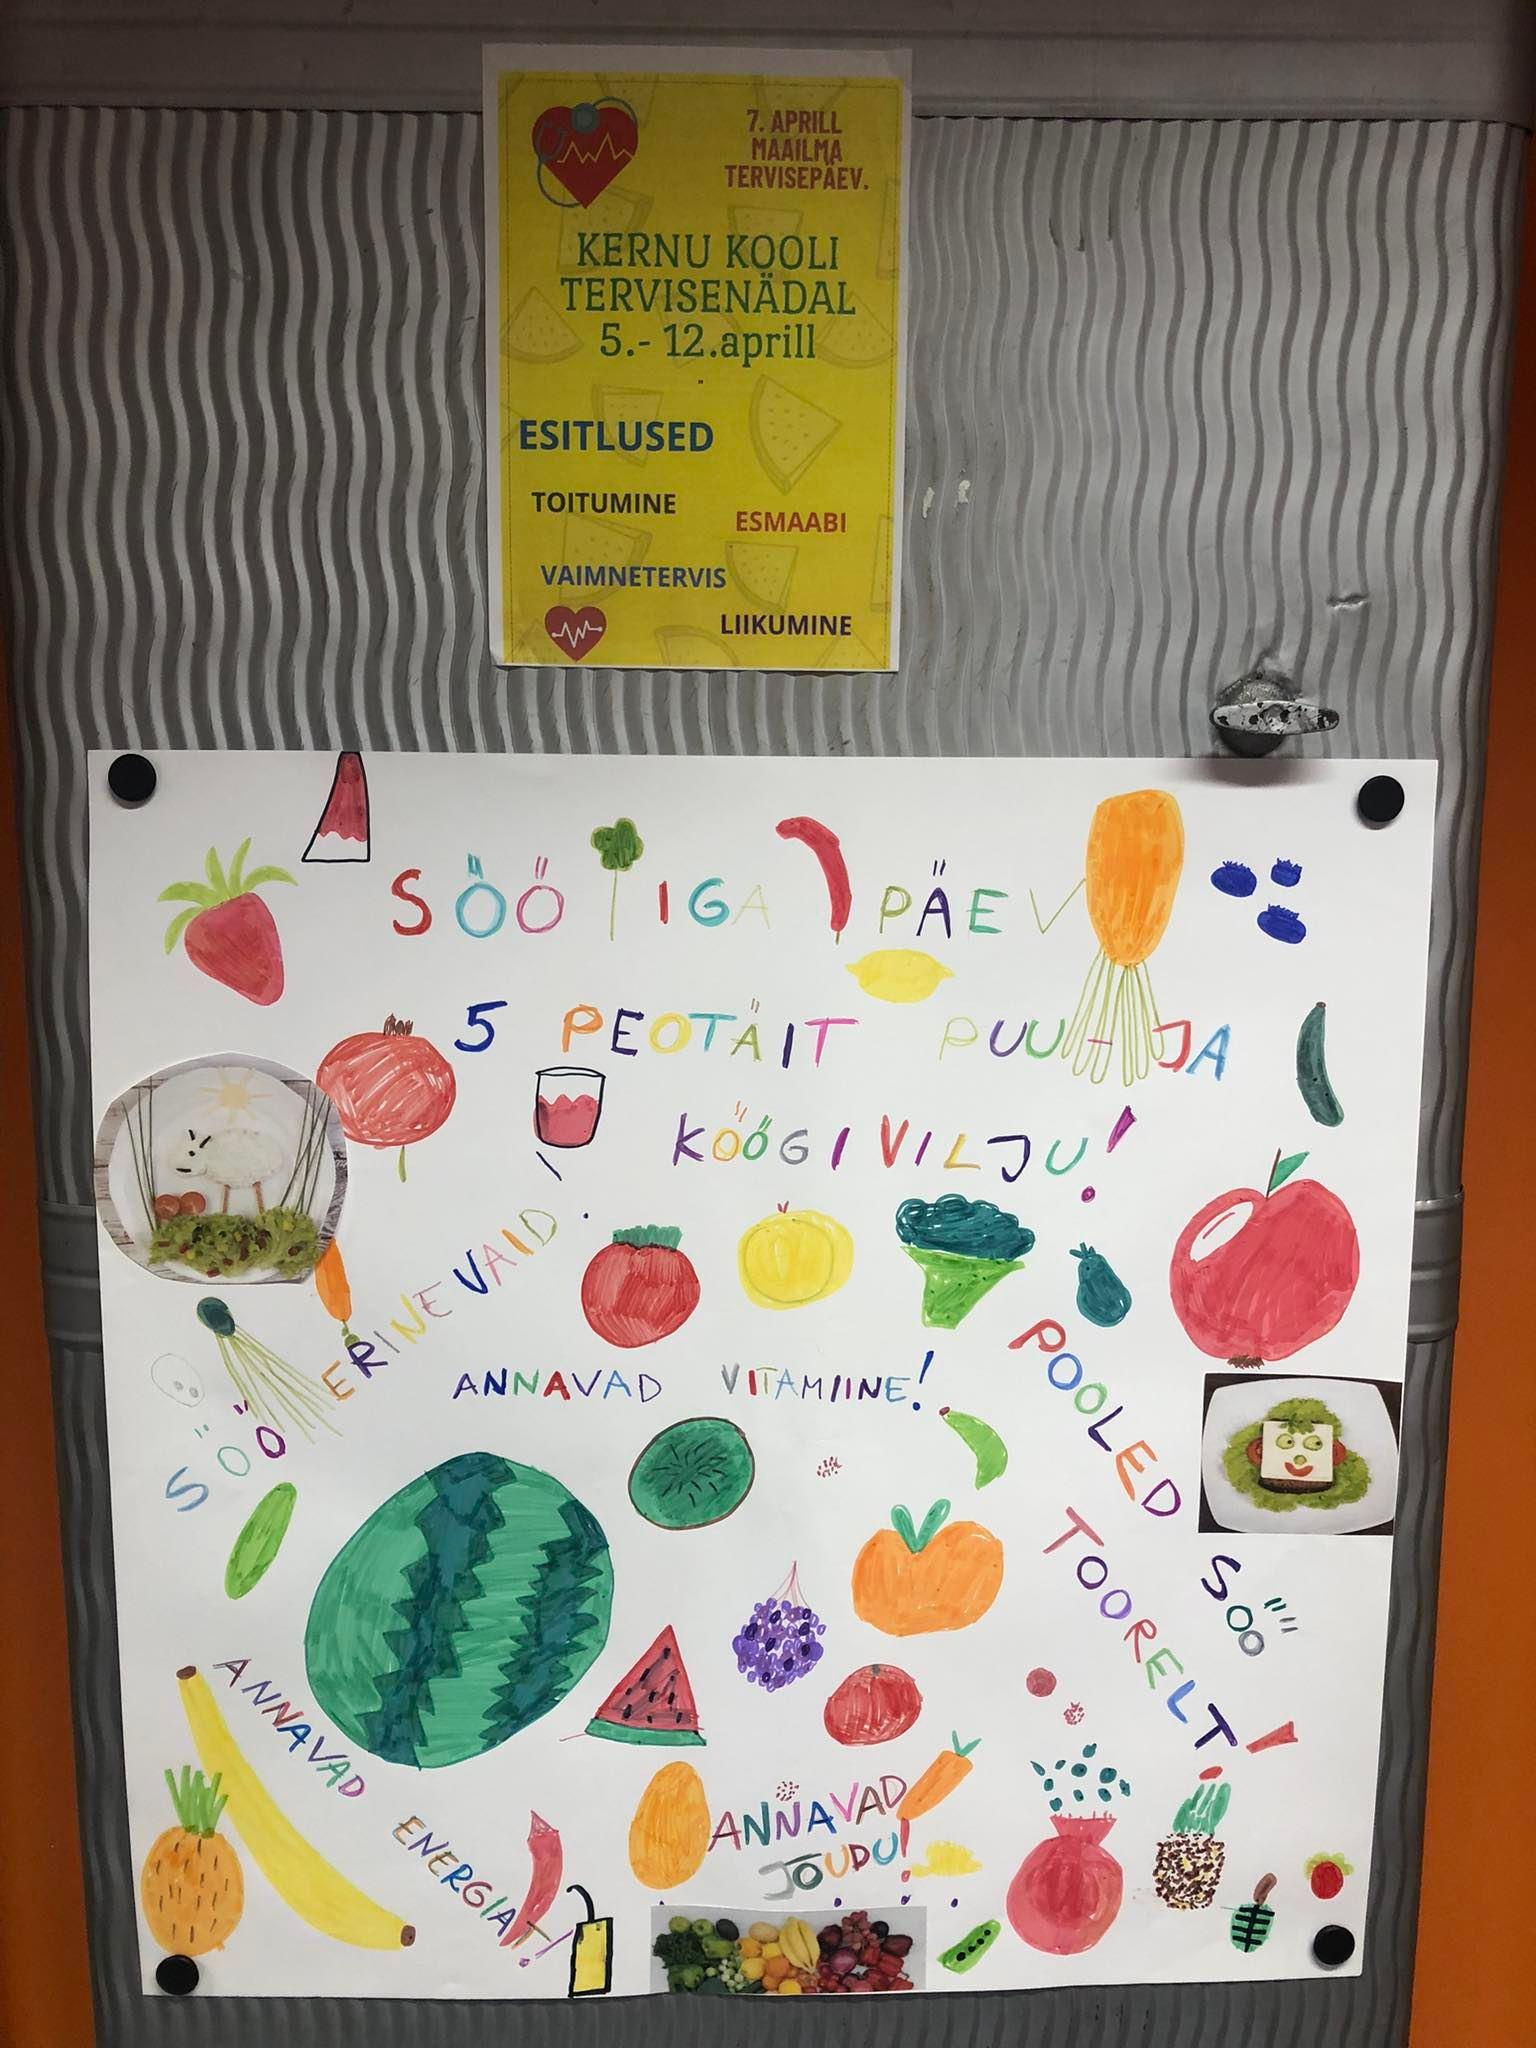 7. APRILL
MAAILMA
TERVISEPÄEV.
KERNU KOOLI
TERVISENÄDAL
5.- 12.aprill
"
ESITLUSED
TOITUMINE
ESMAABI
VAIMNETERVIS
LIIKUMINE
SÖÖ IGA PÄEV
5 PEOTÄIT PUU- JA
KÖÖGIVILJU!
SÖÖ ERINEVAID!
ANNAVAD VITAMIINE!
POOLED SÖÖ
TOORELT!
ANNAVAD ENERGIAT!
ANNAVAD
JÕUDU!